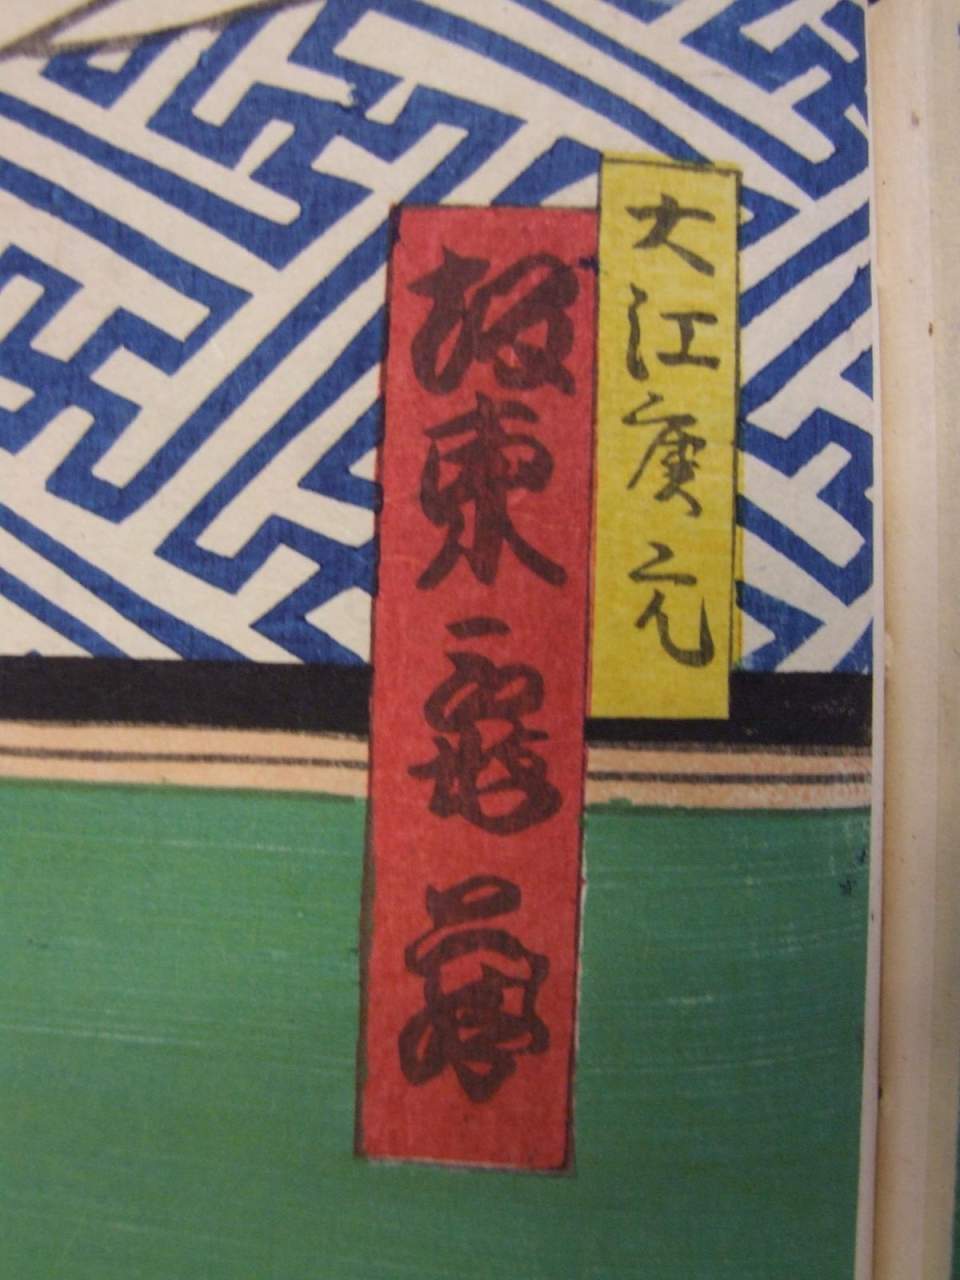 大江廣元
坂東龜蔵